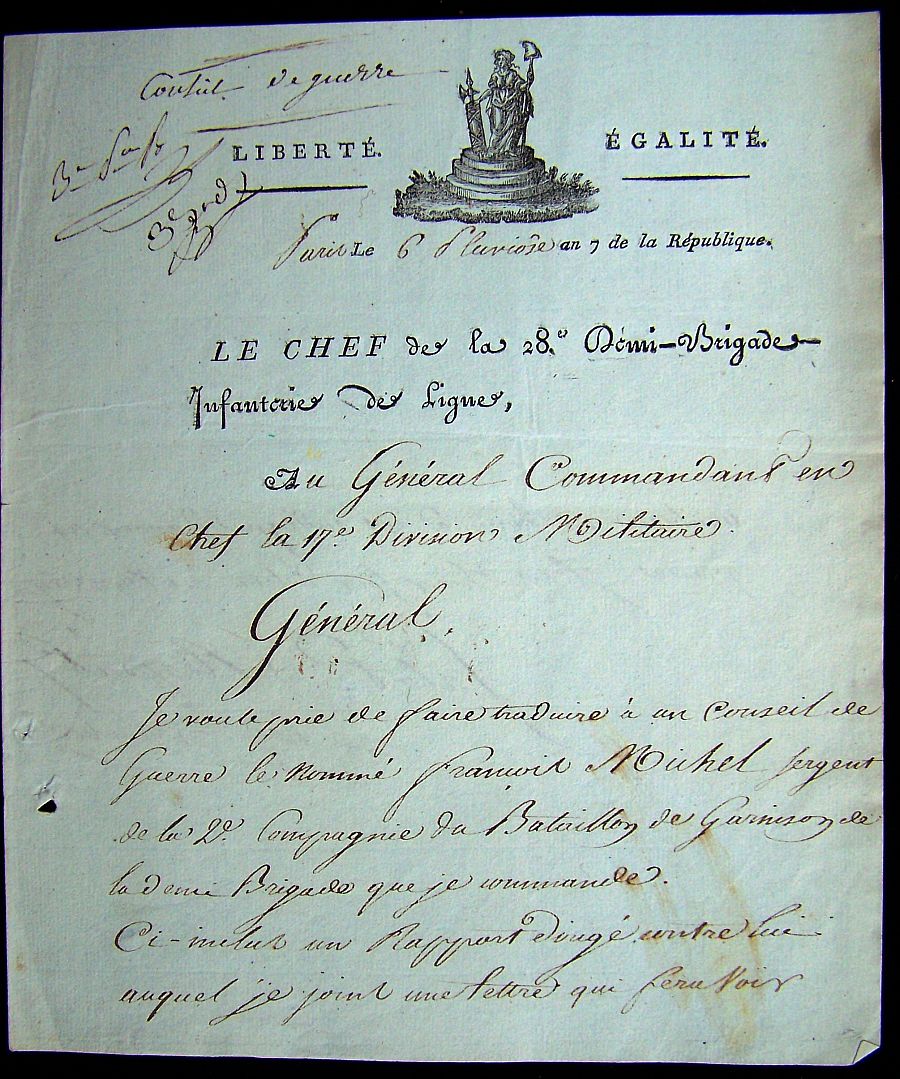 Conseil de guerre
LIBERTÉ. ÉGALITÉ.
Paris Le 6 Pluviôse an 7 de la République.
LE CHEF de la 28.e Demi-Brigade
Infanterie de Ligne,
Au Général Commandant en
Chef la 17e Division Militaire.
Général,
Je vous prie de faire traduire à un Conseil de
Guerre le Nommé François Michel sergent
de la 2e Compagnie du Bataillon de Garnison de
la demi Brigade que je commande.
Ci-inclus un Rapport dirigé contre lui
auquel je joint une lettre qui fera Voir